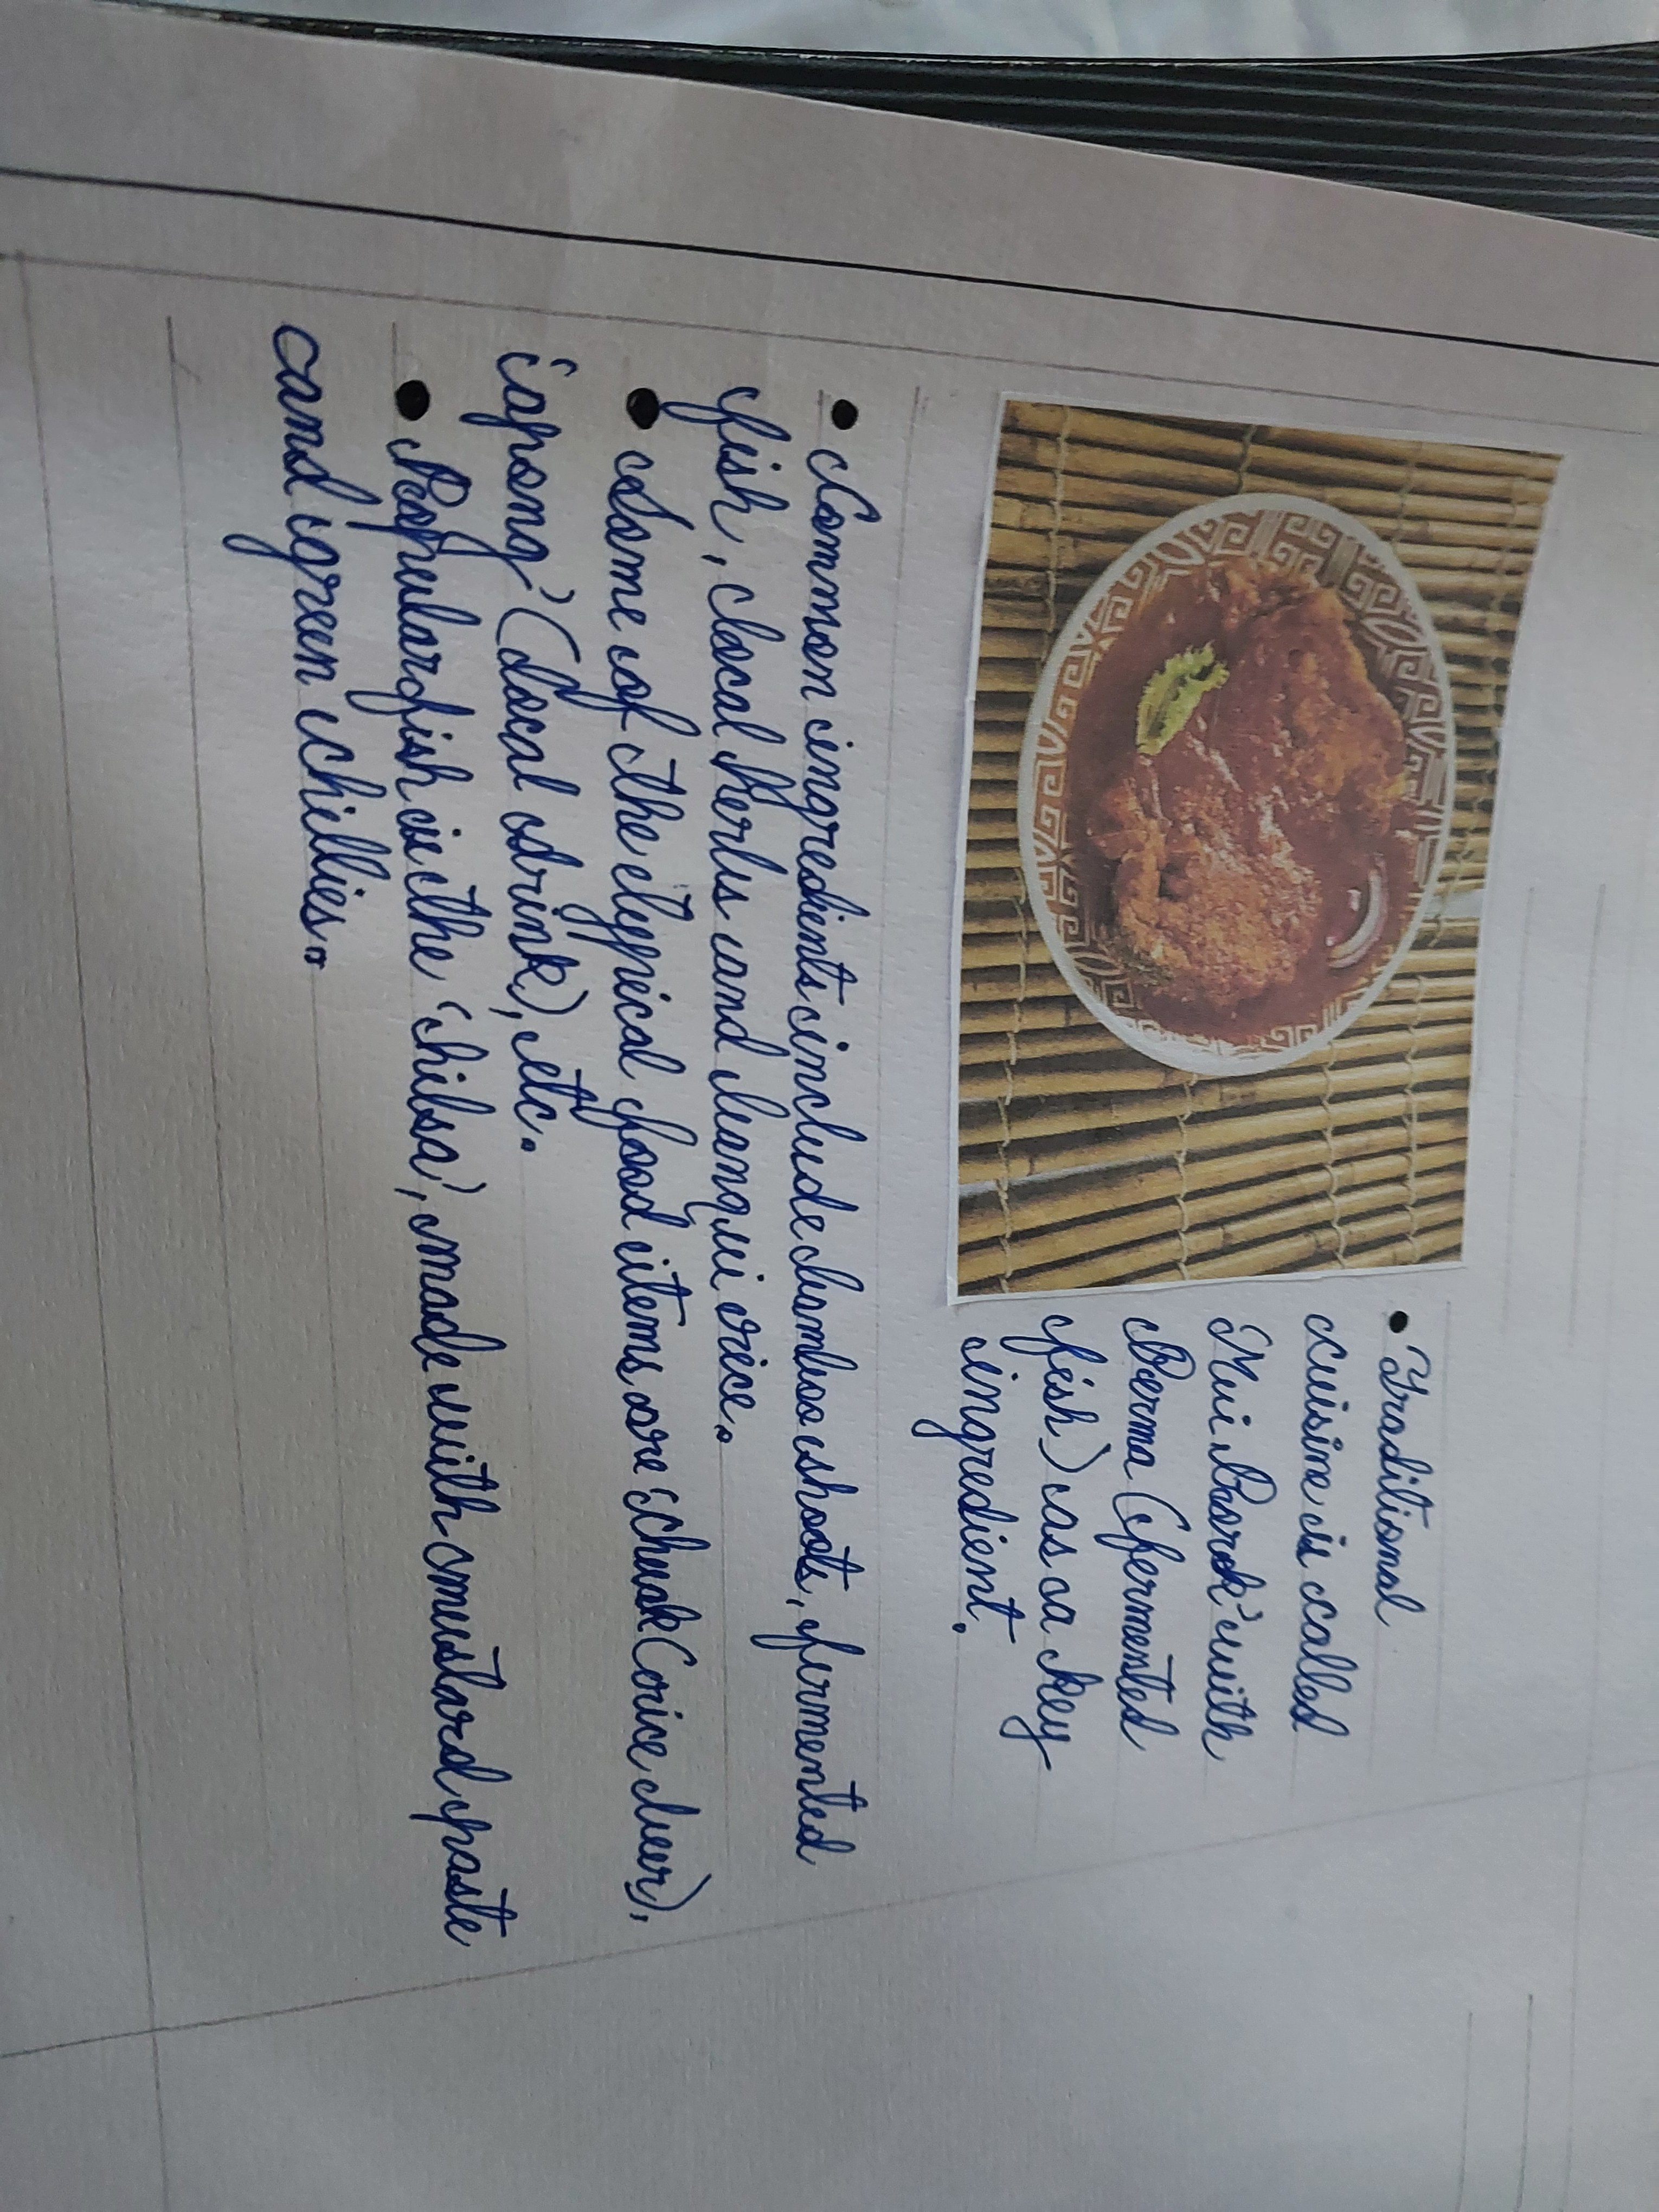 • Traditional
cuisine is called
'Mui Borok' with
Berma (fermented
fish) as a key
ingredient.
• Common ingredients include bamboo shoots, fermented
fish, local herbs and leangui rice.
• Some of the typical food items are 'chuak (rice beer),
'apong' (local drink), etc.
• Popular fish is the 'chilsa', made with mustard paste
and green chillies.